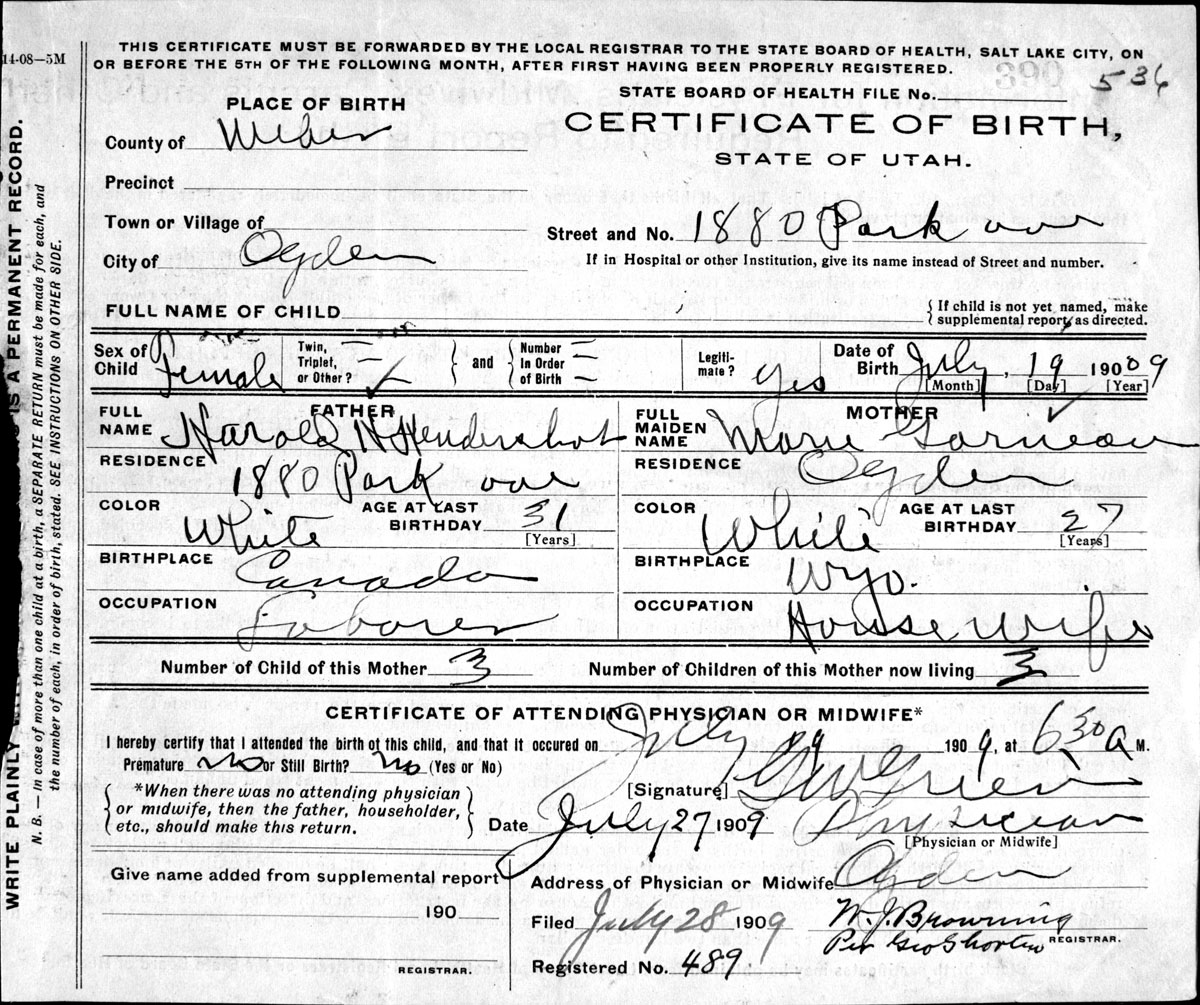 14-08—5M
THIS CERTIFICATE MUST BE FORWARDED BY THE LOCAL REGISTRAR TO THE STATE BOARD OF HEALTH, SALT LAKE CITY, ON
OR BEFORE THE 5TH OF THE FOLLOWING MONTH, AFTER FIRST HAVING BEEN PROPERLY REGISTERED.
STATE BOARD OF HEALTH FILE No. 536
PLACE OF BIRTH
CERTIFICATE OF BIRTH,
STATE OF UTAH.
County of Weber
Precinct
Town or Village of
Street and No. 1880 Park ave
City of Ogden
If in Hospital or other Institution, give its name instead of Street and number.
FULL NAME OF CHILD
{ If child is not yet named, make
{ supplemental report, as directed.
Sex of Child Female
Twin, Triplet, or Other?
and
Number In Order of Birth
Legiti-mate? yes
Date of Birth July, 19 1909
[Month] [Day] [Year]
FATHER
FULL NAME Harold N Hendershot
RESIDENCE 1880 Park ave
COLOR White
AGE AT LAST BIRTHDAY 31
[Years]
BIRTHPLACE Canada
OCCUPATION Laborer
MOTHER
FULL MAIDEN NAME Marie Garneau
RESIDENCE Ogden
COLOR White
AGE AT LAST BIRTHDAY 27
[Years]
BIRTHPLACE Wyo.
OCCUPATION House wife
Number of Child of this Mother 3
Number of Children of this Mother now living 3
CERTIFICATE OF ATTENDING PHYSICIAN OR MIDWIFE*
I hereby certify that I attended the birth of this child, and that it occured on July 19 1909, at 630 a M.
Premature no or Still Birth? no (Yes or No)
[Signature]
*When there was no attending physician
or midwife, then the father, householder,
etc., should make this return.
Date July 27 1909 Physician
[Physician or Midwife]
Give name added from supplemental report
190
REGISTRAR.
Address of Physician or Midwife Ogden
Filed July 28 1909 W. J. Browning
Per Geo Shorten REGISTRAR.
Registered No. 489.
WRITE PLAINLY
IS A PERMANENT RECORD.
N. B. — In case of more than one child at a birth, a SEPARATE RETURN must be made for each, and
the number of each, in order of birth, stated. SEE INSTRUCTIONS ON OTHER SIDE.